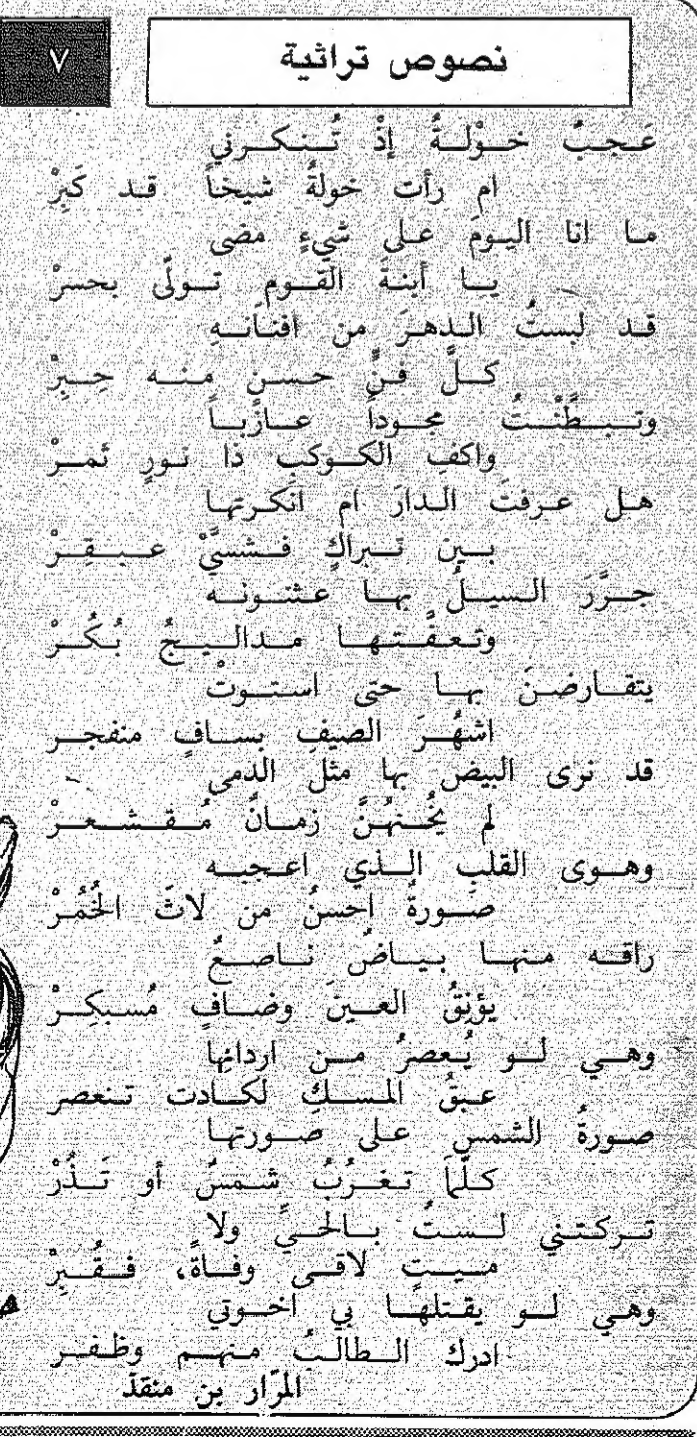 نصوص تراثية
٧
عَجبٌ خوْلةُ إذْ تُنكرني
ام رأت خولةُ شيخاً قد كَبِرْ
ما انا اليومَ على شيءٍ مضى
يا أبنةَ القوم تولّى بحسرْ
قد لبستُ الدهرَ من افنانهِ
كلَّ فنٍّ حسنٍ منه حِبِرْ
وتبطَّنْتُ مجوداً عازباً
واكفِ الكوكبِ ذا نورٍ ثمرْ
هل عرفتَ الدارَ ام انكرتها
بين تبراكٍ فشسيَّ عبقِرْ
جرَّرَ السيلُ بها عثنونه
وتعفَّتها مداليجُ بُكُرْ
يتقارضنَ بها حتى استوتْ
اشهُرَ الصيفِ بسافٍ منفجر
قد نرى البيض بها مثل الدمى
لم يخُنهُنَّ زمانٌ مُقشعرْ
وهوى القلبِ الذي اعجبه
صورةٌ احسنُ من لاثَ الخُمُرْ
راقه منها بياضٌ ناصعٌ
يؤنِقُ العينَ وضافٍ مُسبكِرْ
وهي لو يُعصرُ من اردانها
عبقُ المسكِ لكادت تنعصر
صورةُ الشمسِ على صورتها
كلّما تغرُبُ شمسٌ أو تَذُرْ
تركتني لستُ بالحيِّ ولا
ميتٍ لاقى وفاةً، فقُبِرْ
وهي لو يقتلها بي اخوتي
ادرك الطالبُ منهم وظفر
المرّار بن منقذ